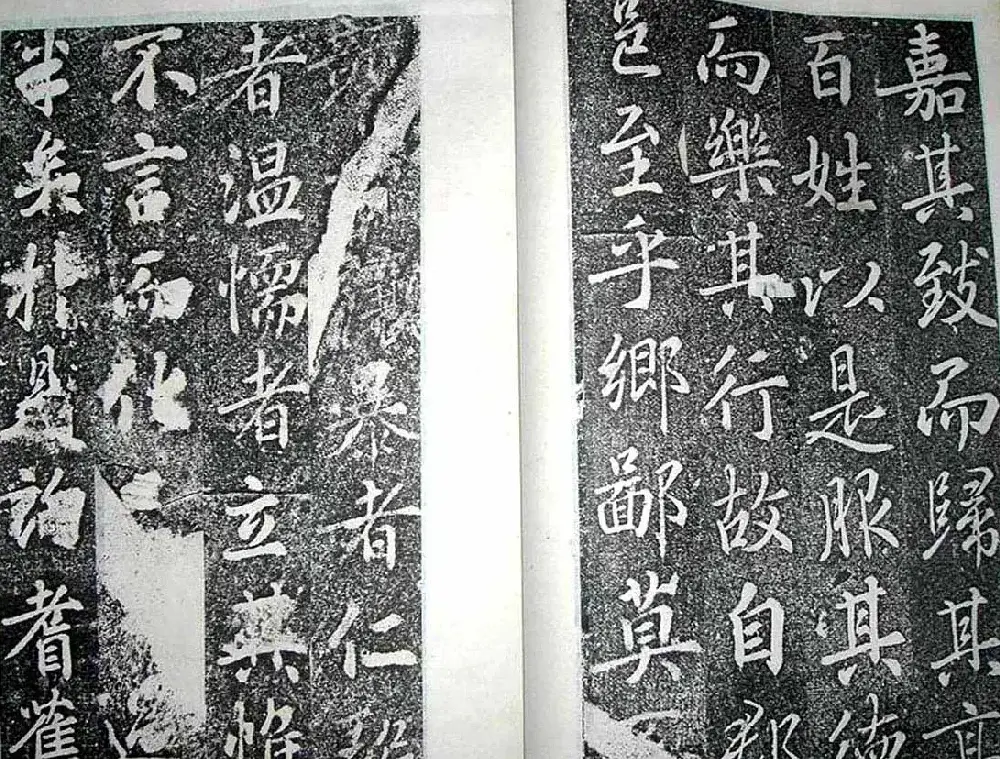 嘉其致而歸其
百姓以是服其德
而樂其行故自郡
邑至乎鄉鄙莫
暴者仁
者温懦者立無
不言而化
半矣於是詢耆舊